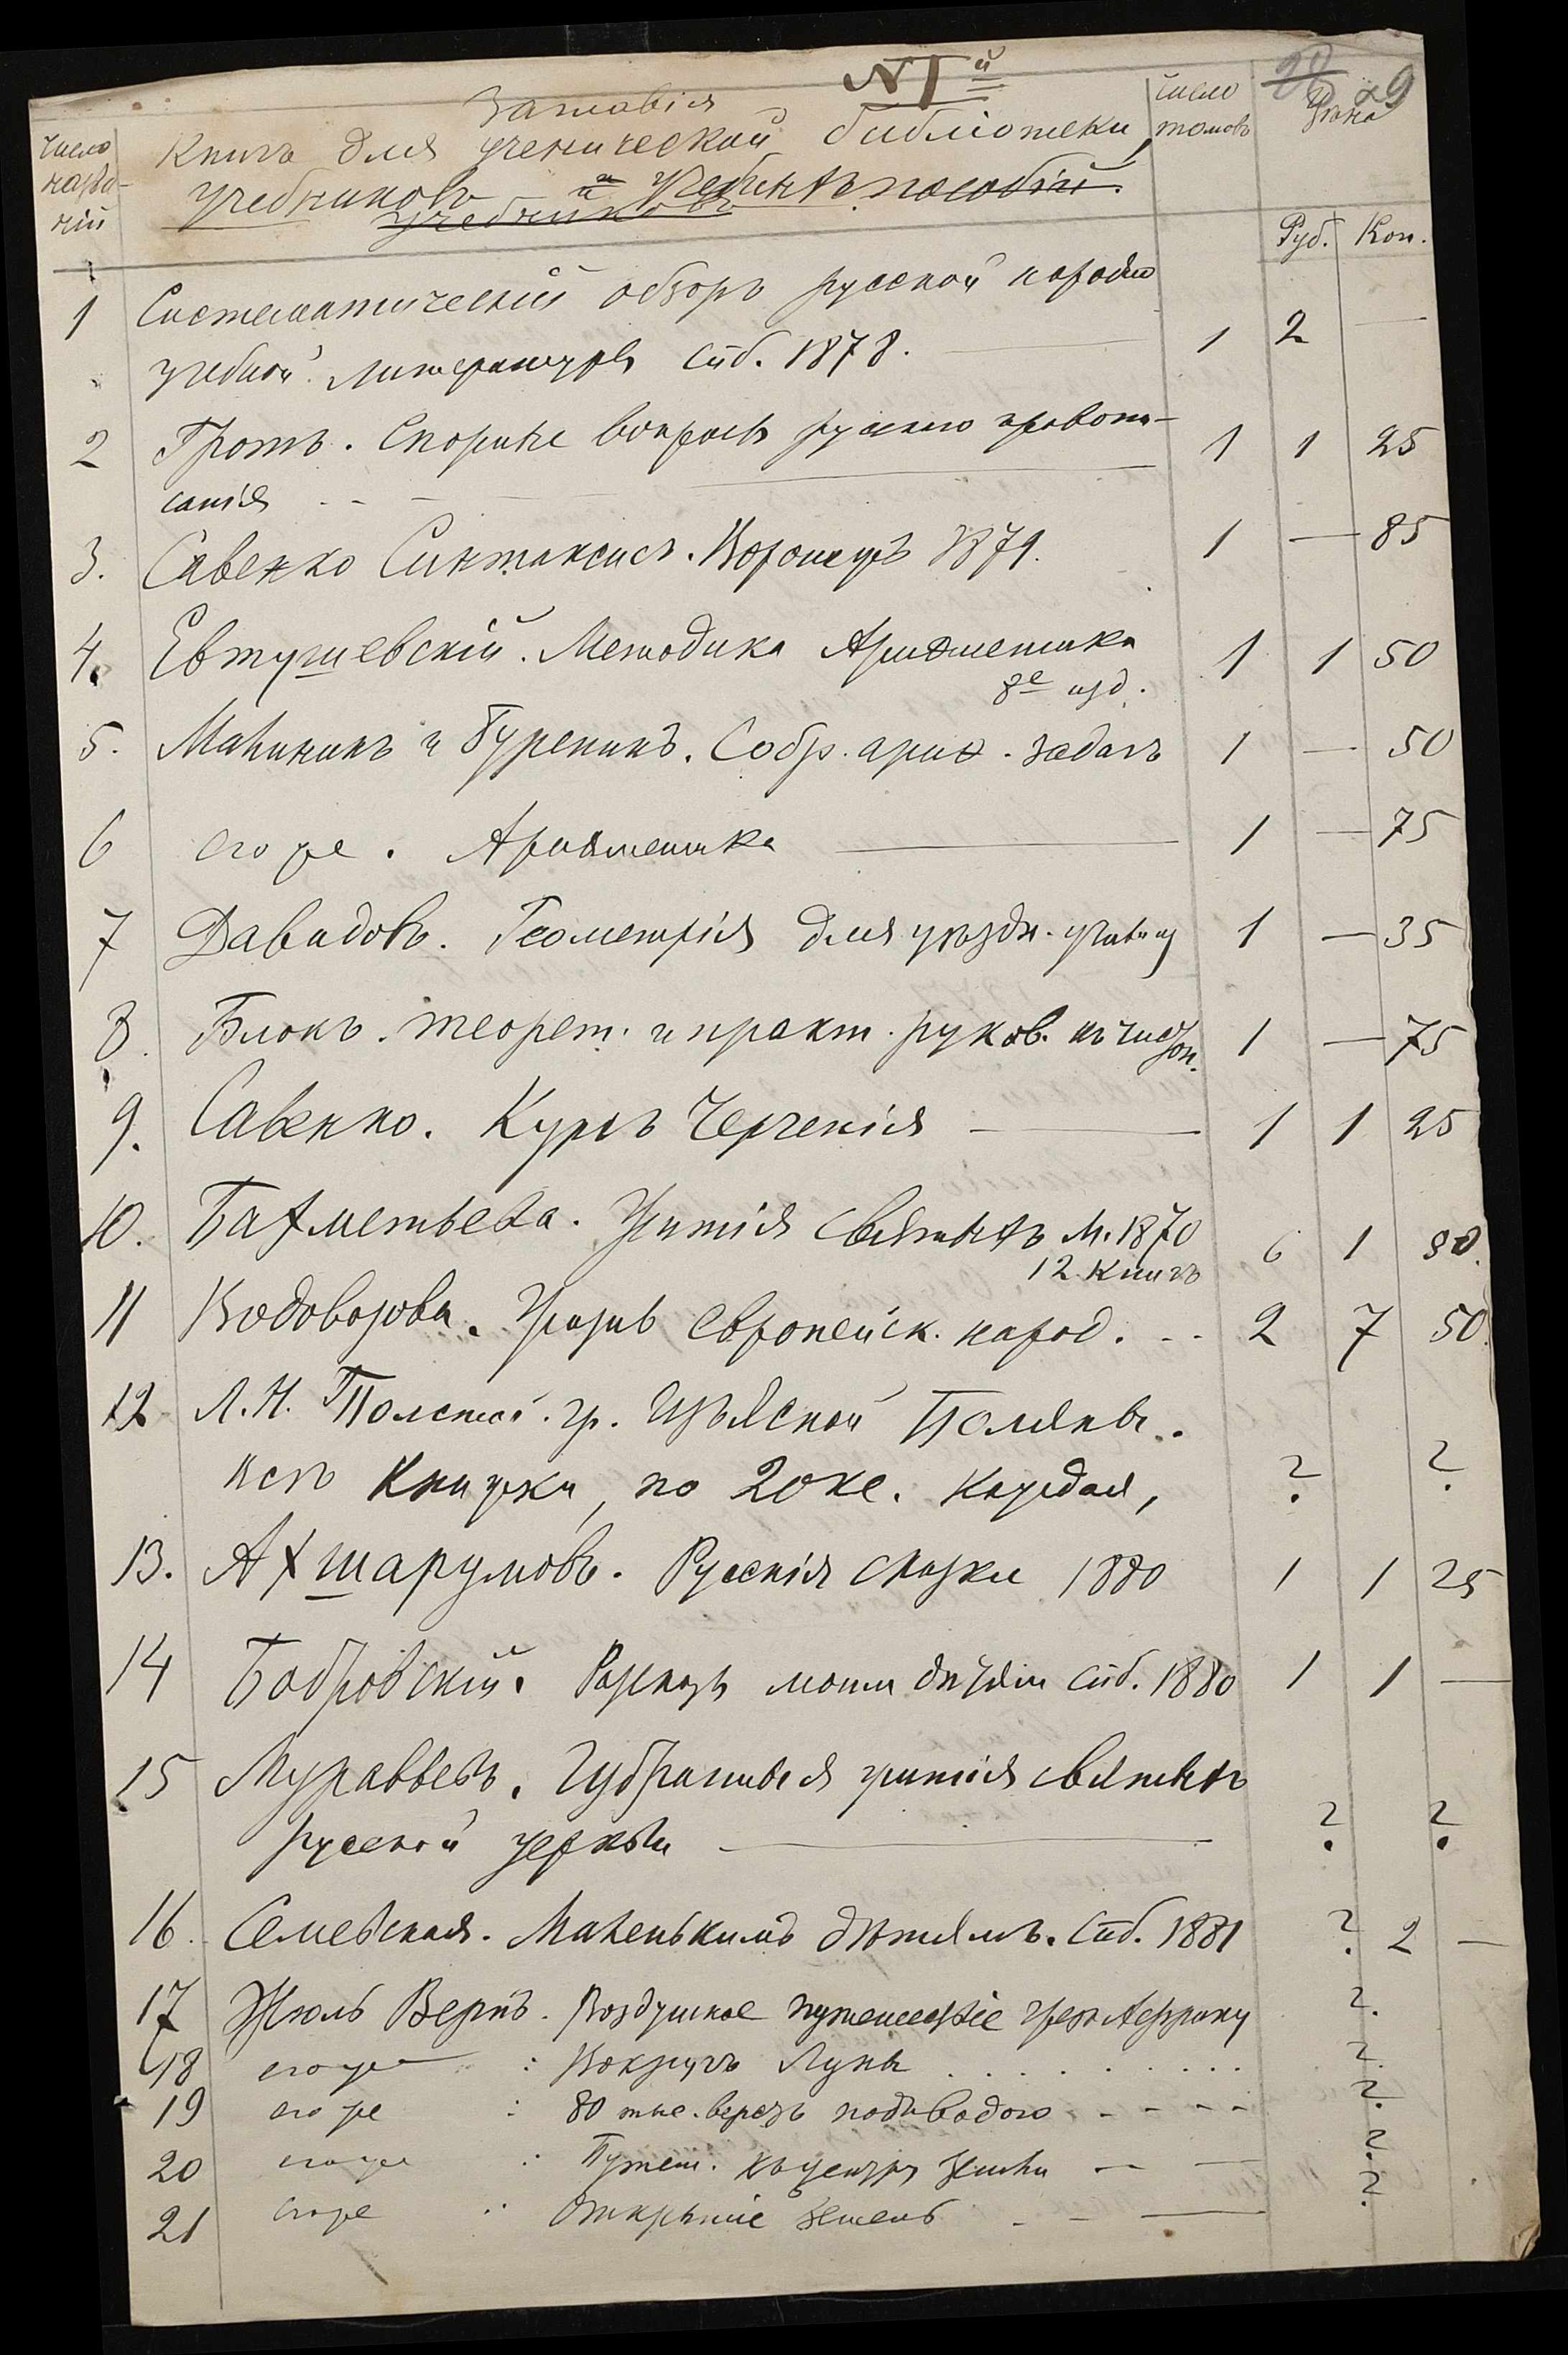 N I й
29
Число назва- ній
Заглавія
Книгъ для ученической библіотеки,
учебниковъ и учебныхъ пособій.
учебниковъ
Число томовъ
Цѣна
Руб. Коп.
1 Систематическій обзоръ русской народно
учебной литературы Спб. 1878. 1 2 —
2 Гротъ. Спорные вопросы русскаго правопи-
санія 1 1 25
3. Савенко Синтаксисъ. Воронежъ 1879. 1 — 85
4. Евтушевскій. Методика Ариѳметика 1 1 50
8е изд.
5. Малининъ и Буренинъ. Собр. ариѳ. задачъ 1 — 50
6 его же. Ариѳметика 1 — 75
7 Давидовъ. Геометрія для уѣздн. училищ 1 — 35
8. Блокъ. теорет. и практ. руков. къ 1 — 75
9. Савенко. Курсъ Черченія 1 1 25
10. Бахметьева. Житія святыхъ М. 1870 6 1 80.
12 книгъ
11 Водовозова. Жизнь европейск. народ. 2 7 50.
12 Л. Н. Толстой. гр. Изъ Ясной Поляны.
книжки, по 20 ке. каждая, ? ?
13. Ахшарумовъ. Русскія сказки 1880 1 1 25
14 Бобровскій. Разсказъ моим дѣтям Спб. 1880 1 1 —
15 Муравьевъ. Избранныя житія святыхъ
русской церкви ? ?
16. Семевская. Маленькимъ дѣтямъ. Спб. 1881 ? 2 —
17 Жюль Вернъ. Воздушное путешествіе чрезъ Африку ?.
18 его же : Вокругъ Луны ?.
19 его же : 80 тыс. верстъ подъ водою ?.
20 его же : Путеш. къ центру Земли ?
21 его же : Открытіе Земель ?